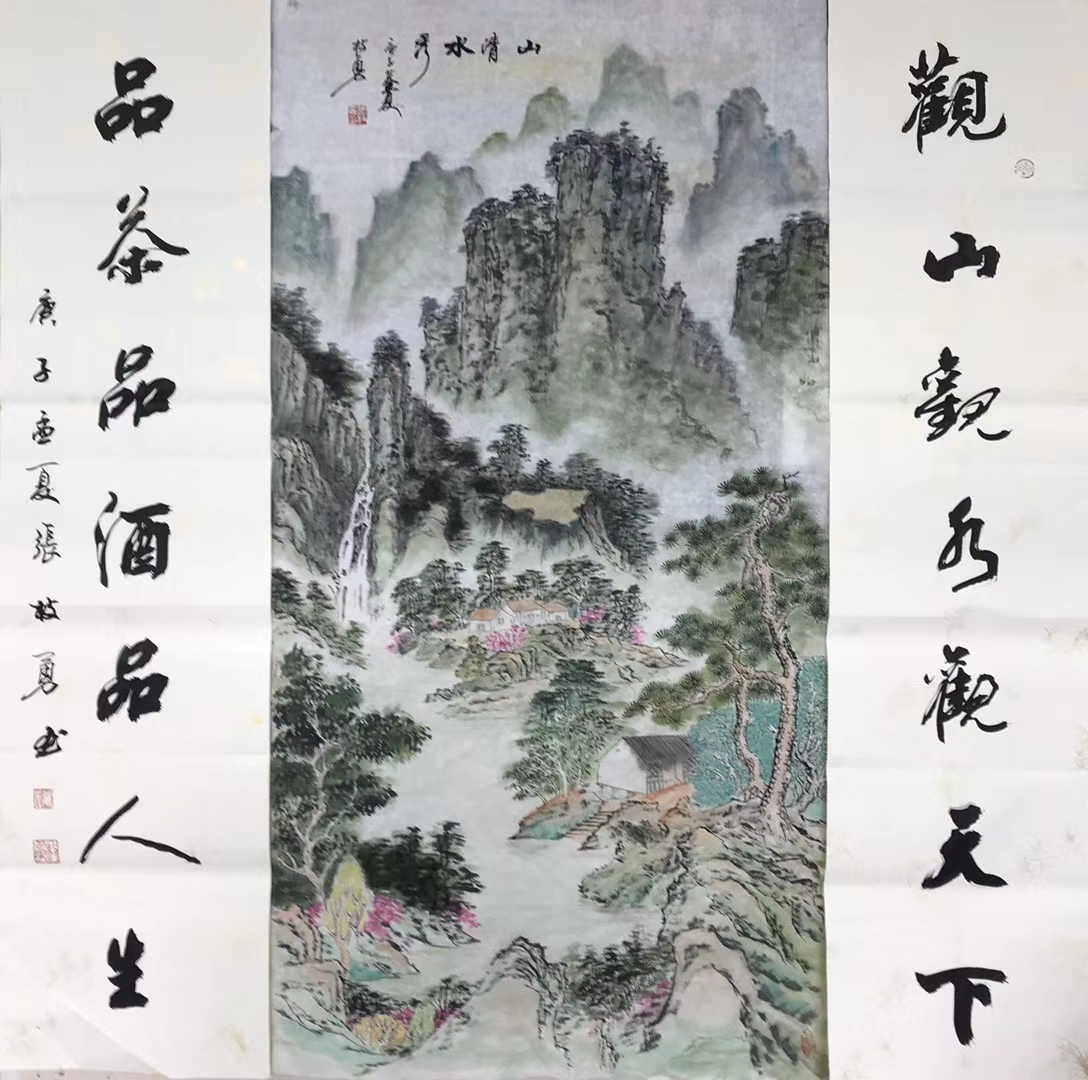 觀山觀水觀天下
山清水秀
品茶品酒品人生
庚子孟夏張枝勇书